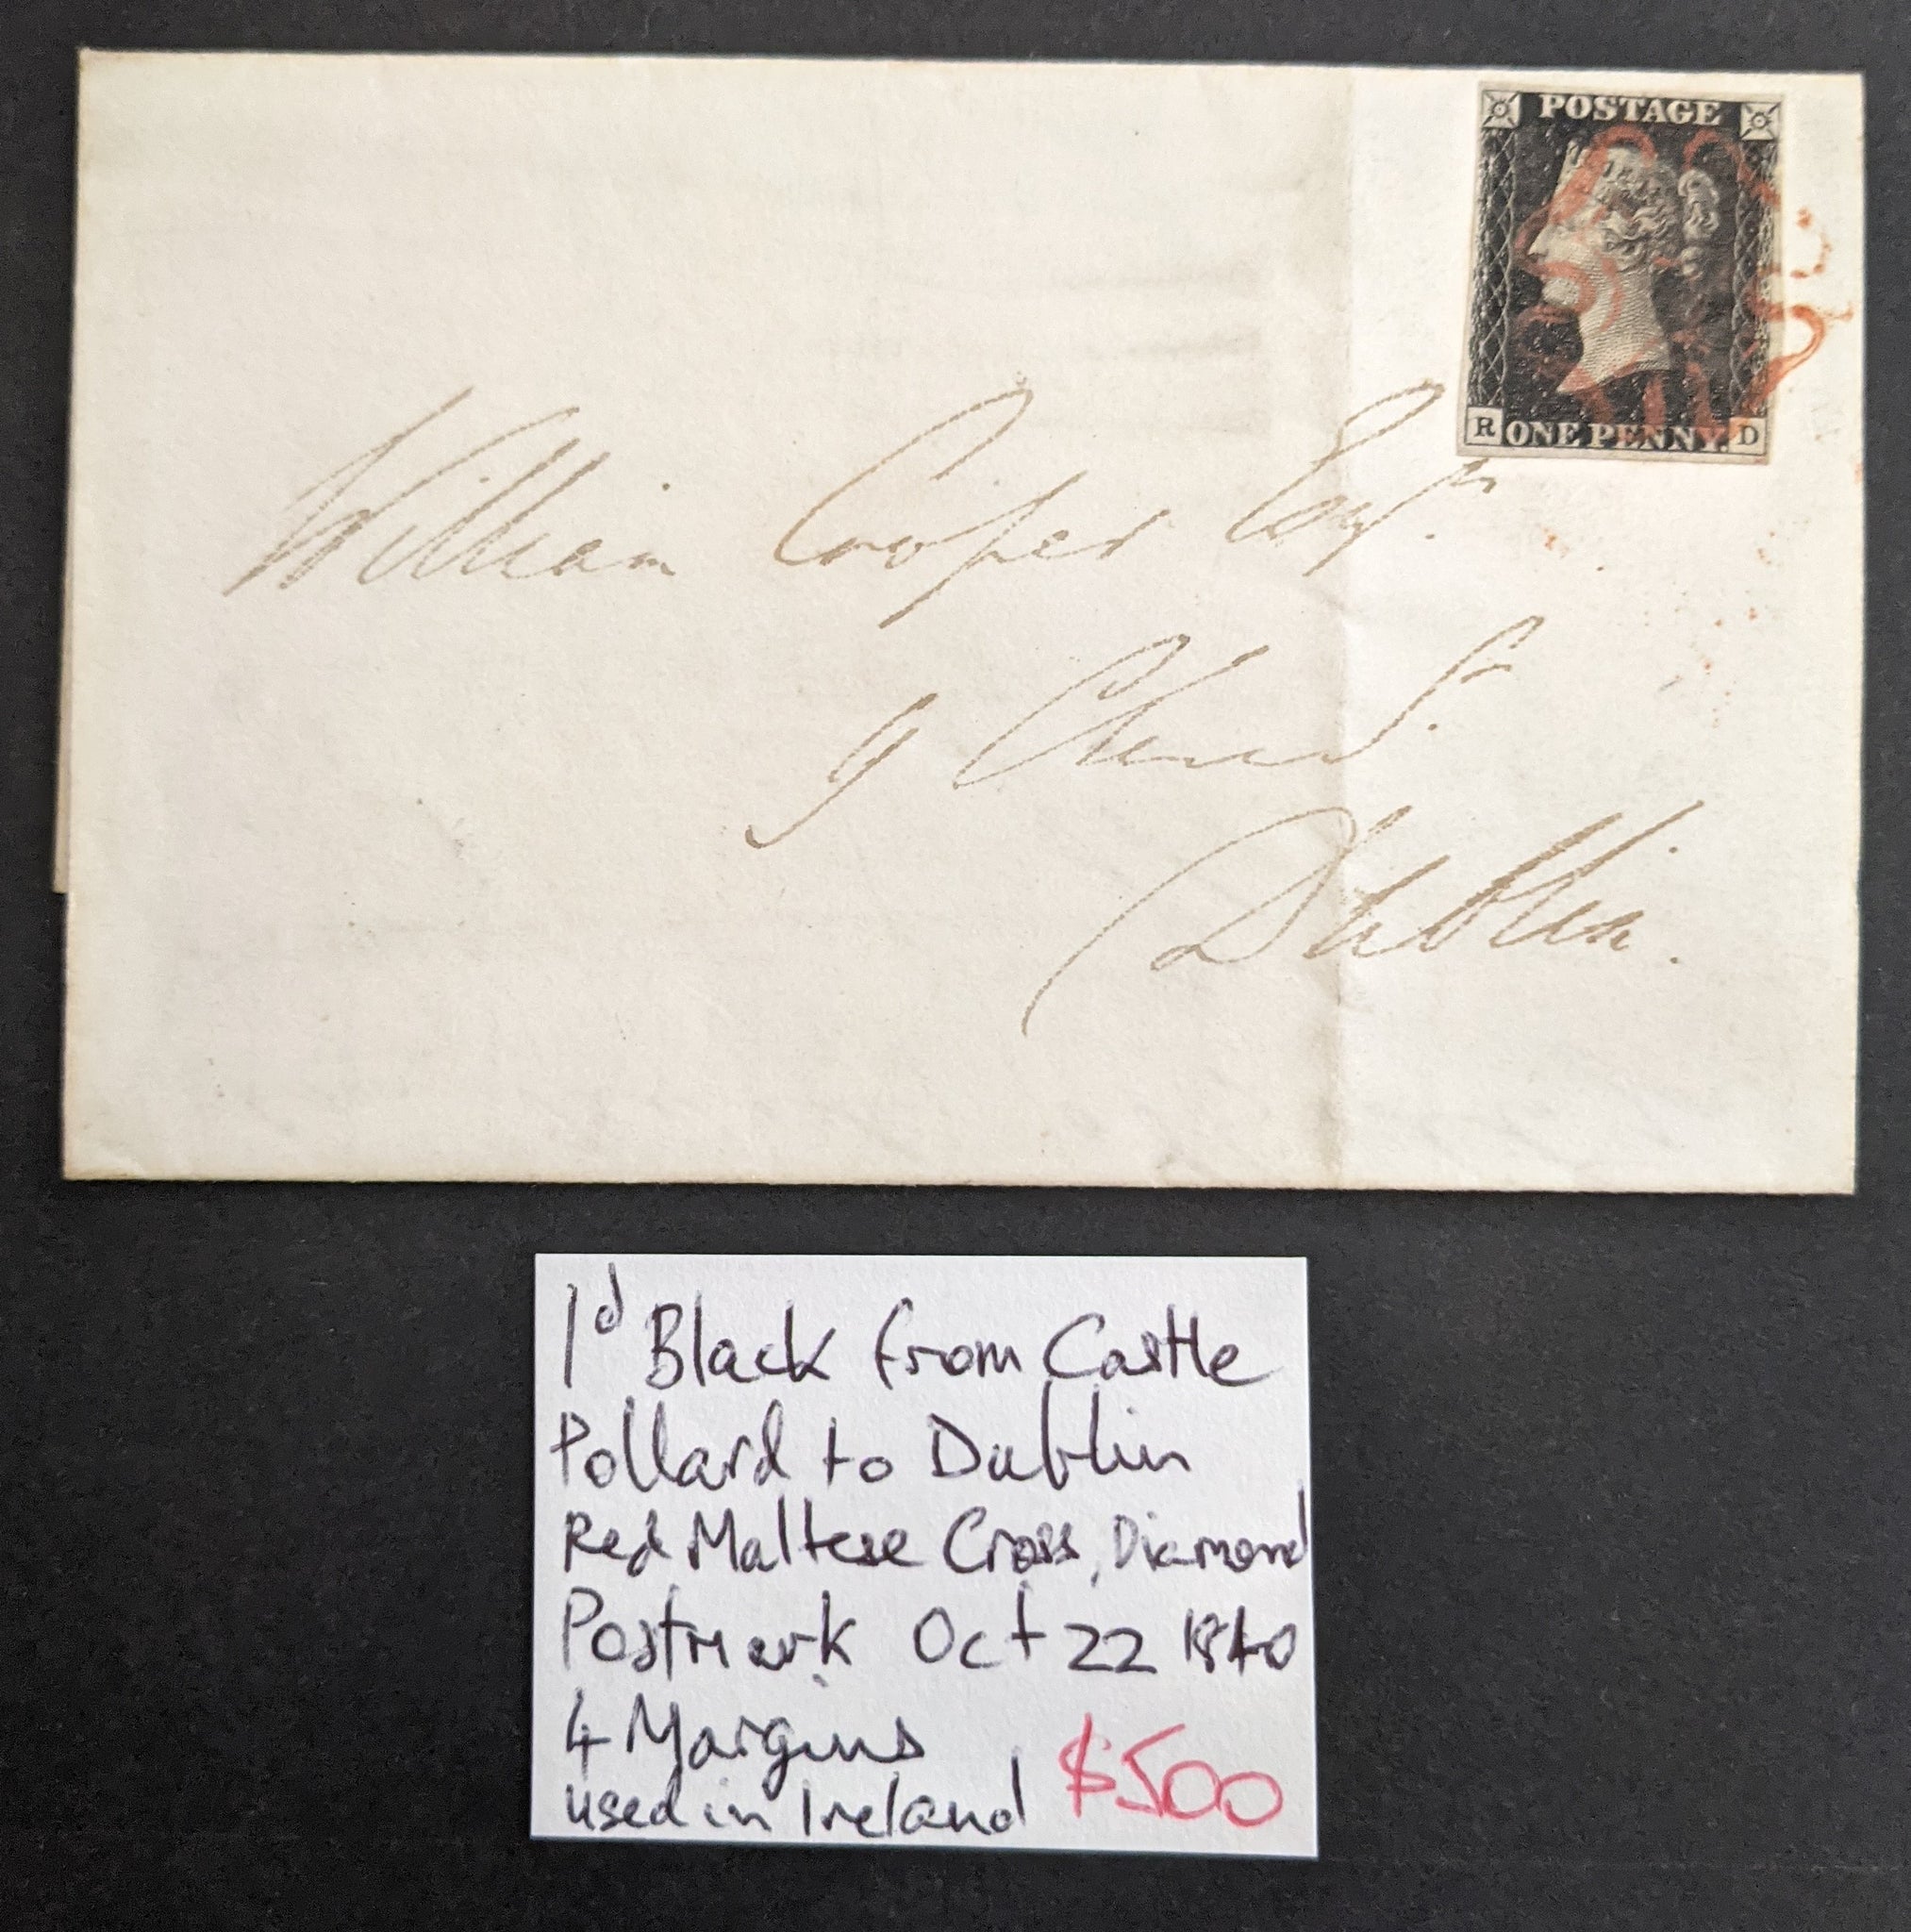 POSTAGE
R ONE PENNY. D
William Cooper Esqr.
9 St.
Dublin.
1d Black from Castle
Pollard to Dublin
Red Maltese Cross, Diamond
Postmark Oct 22 1840
4 Margins
used in Ireland $500